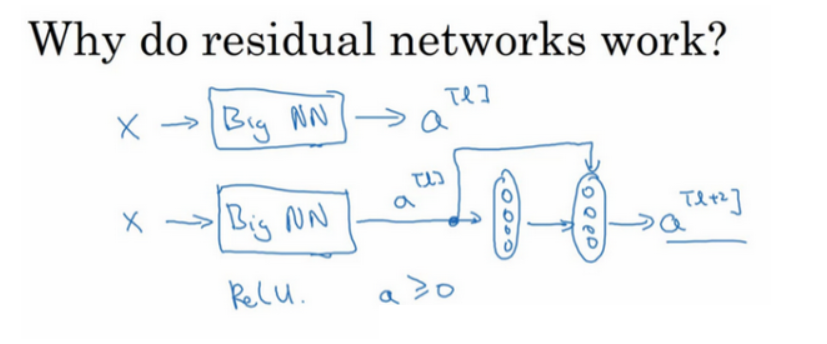 Why do residual networks work?
X → Big NN → a[l]
X → Big NN a[l] → → → a[l+2]
ReLU. a ≥ 0